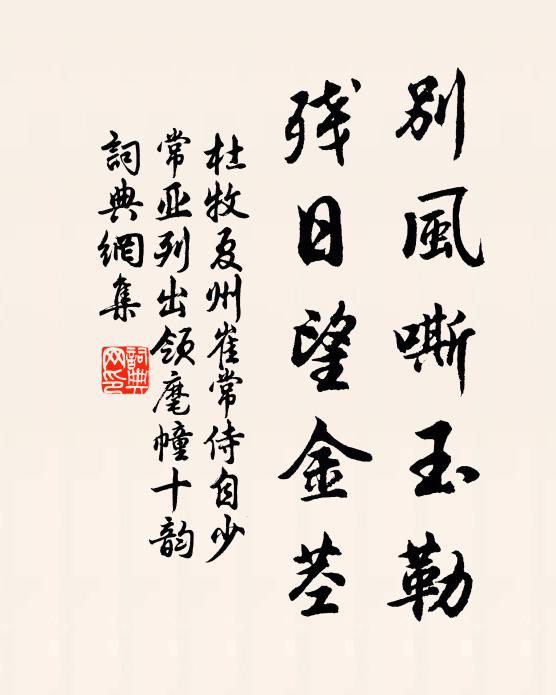 別風嘶玉勒
残日望金茎
杜牧夏州崔常侍自少
常亚列出领麾幢十韵
詞典網集
詞典
网印